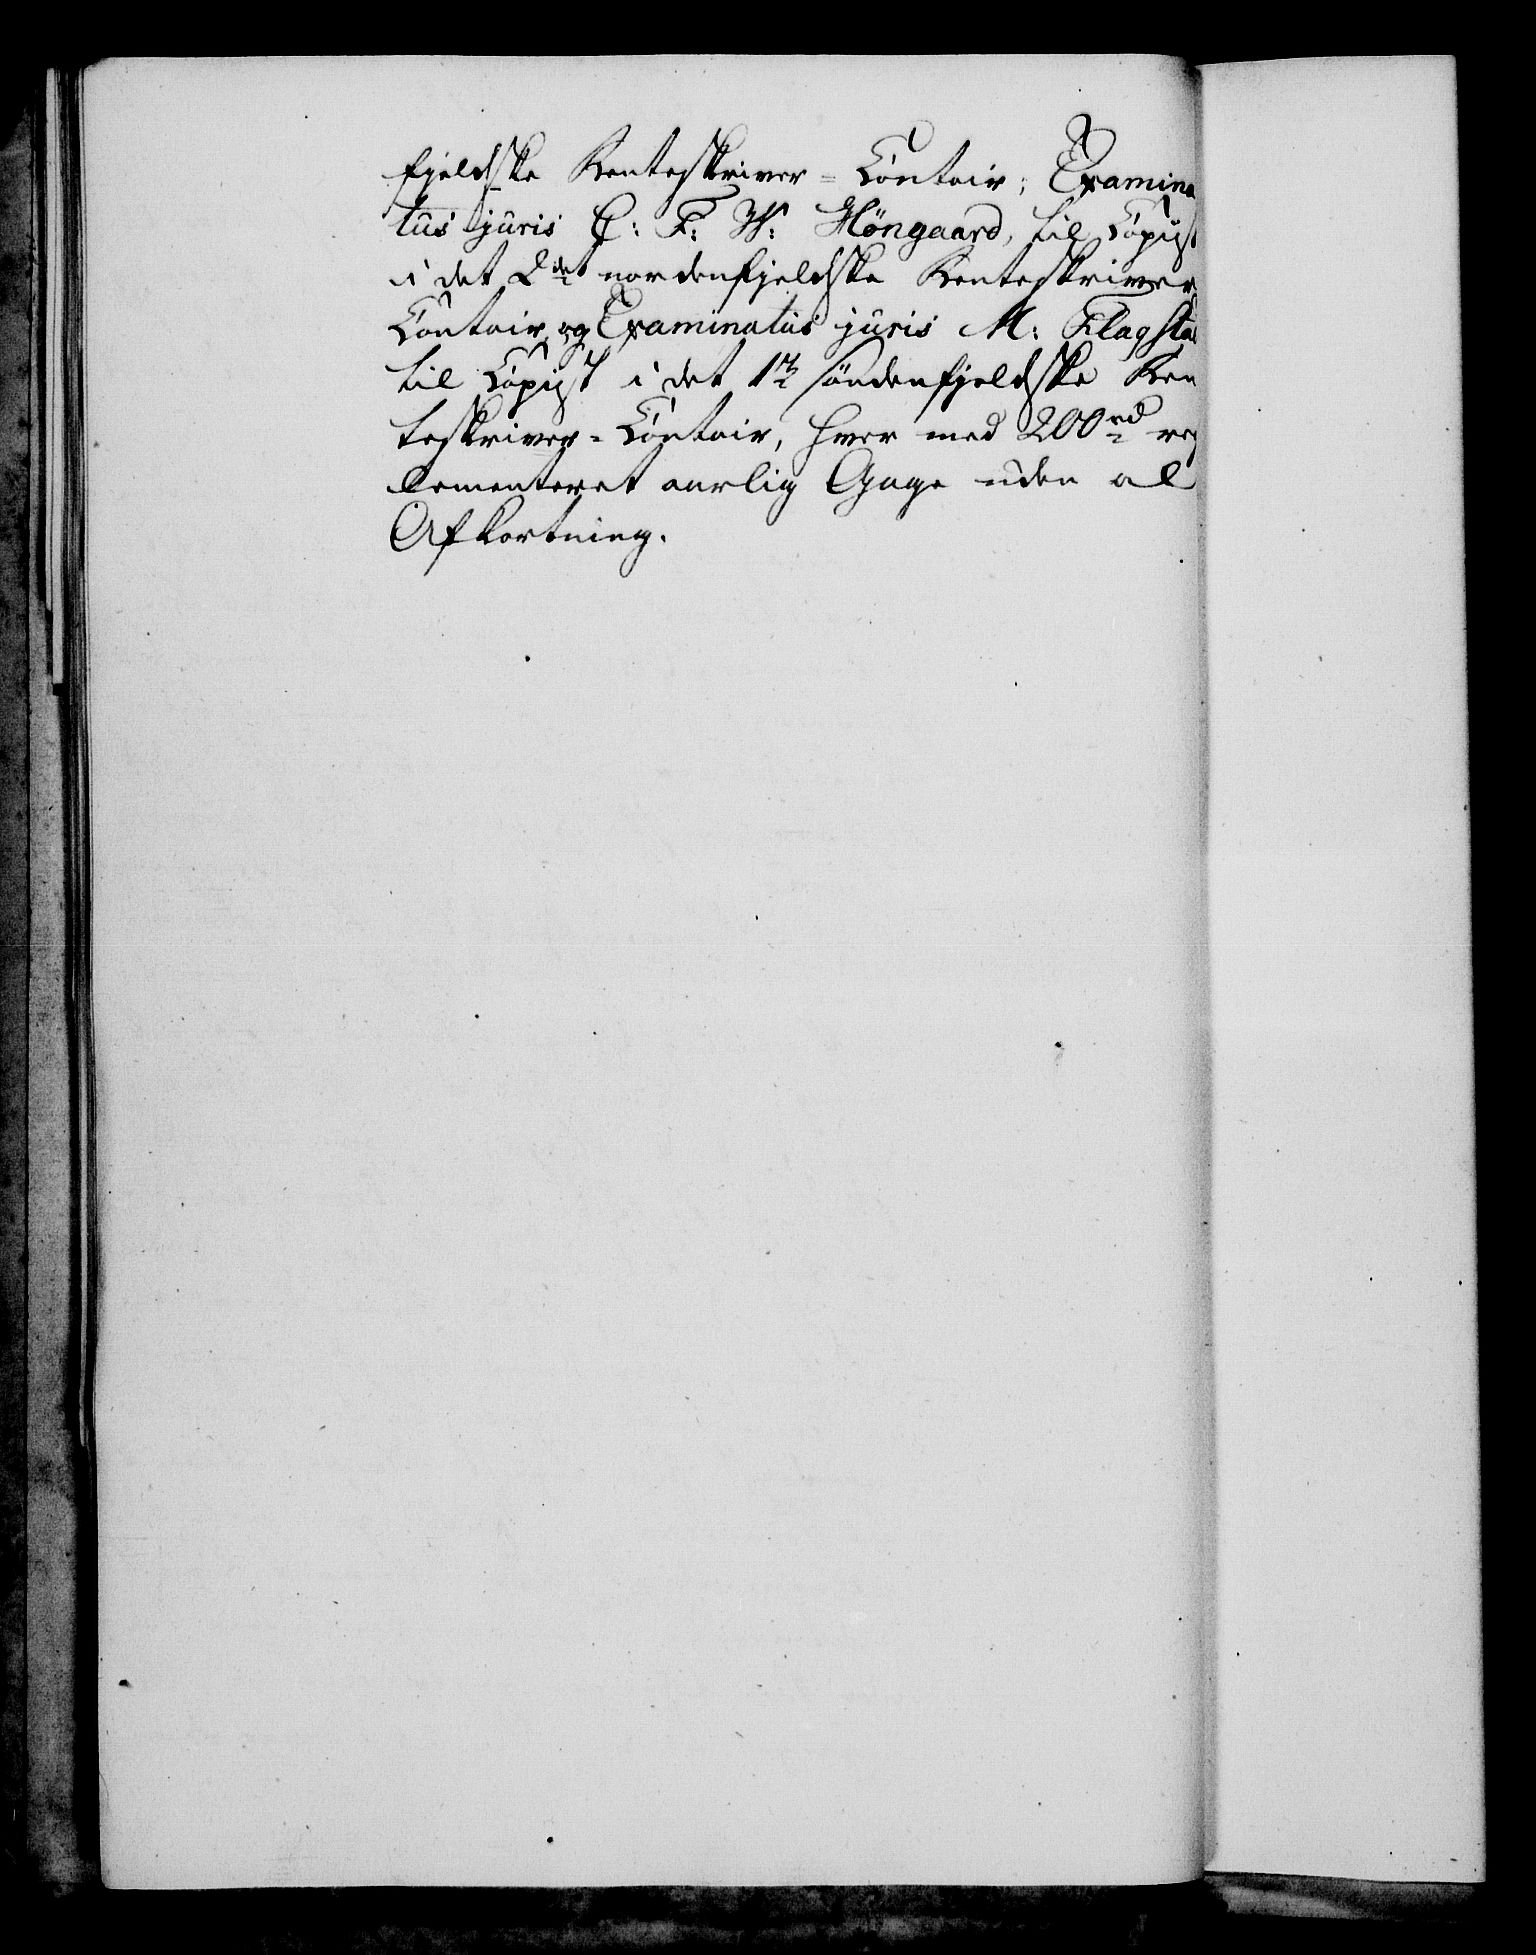 fjeldske Renteskriver-Contoir; Examina
tus juris C: F: W: Höngaard, til Copiist
i det 2det nordenfjeldske Renteskriver
Contoir, og Examinatus juris M: Flagsta
til Copiist i det 1te söndenfjeldske Ren
teskriver-Contoir, hver med 200 rd reg
lementeret aarlig Gage uden al
Afkortning.